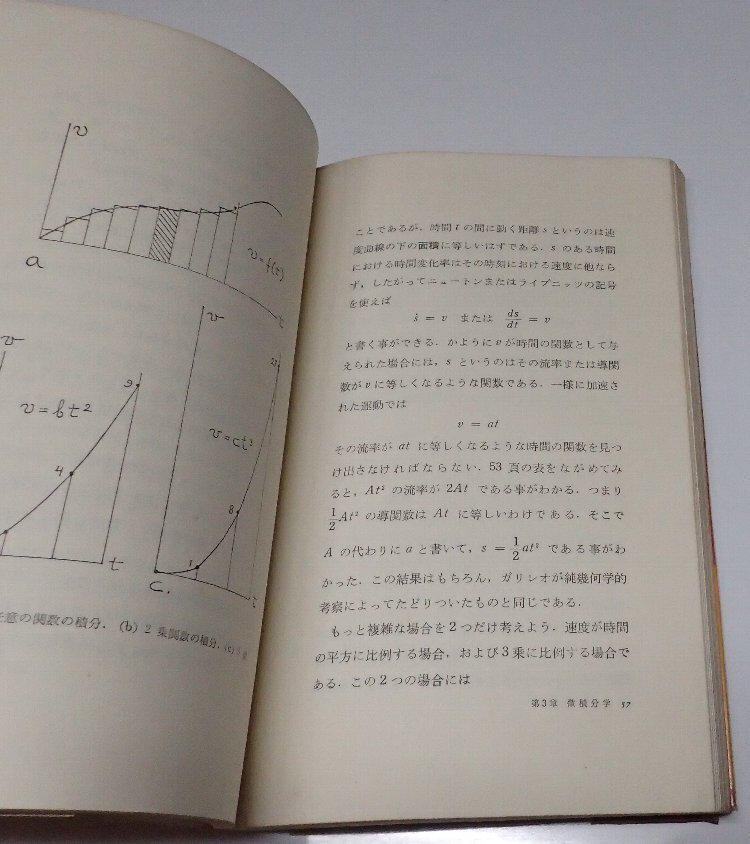 v
v = f(t)
a
t
v
v = bt²
9
4
t
v
27
v = ct³
8
1
c.
t
任意の関数の積分. (b) 2 乗関数の積分. (c) 3
ことであるが, 時間 t の間に動く距離 s というのは速
度曲線の下の面積に等しいはずである. s のある時間
における時間変化率はその時刻における速度に他なら
ず, したがってニュートンまたはライプニッツの記号
を使えば
ṡ = v または ds/dt = v
と書く事ができる. かように v が時間の関数として与
えられた場合には, s というのはその流率または導関
数が v に等しくなるような関数である. 一様に加速さ
れた運動では
v = at
その流率が at に等しくなるような時間の関数を見つ
け出さなければならない. 53 頁の表をながめてみ
ると, At² の流率が 2At である事がわかる. つまり
1/2 At² の導関数は At に等しいわけである. そこで
A の代わりに a と書いて, s = 1/2 at² である事がわ
かった. この結果はもちろん, ガリレオが純幾何学的
考察によってたどりついたものと同じである.
もっと複雑な場合を2つだけ考えよう. 速度が時間
の平方に比例する場合, および3乗に比例する場合で
ある. この2つの場合には
第3章 微積分学 57